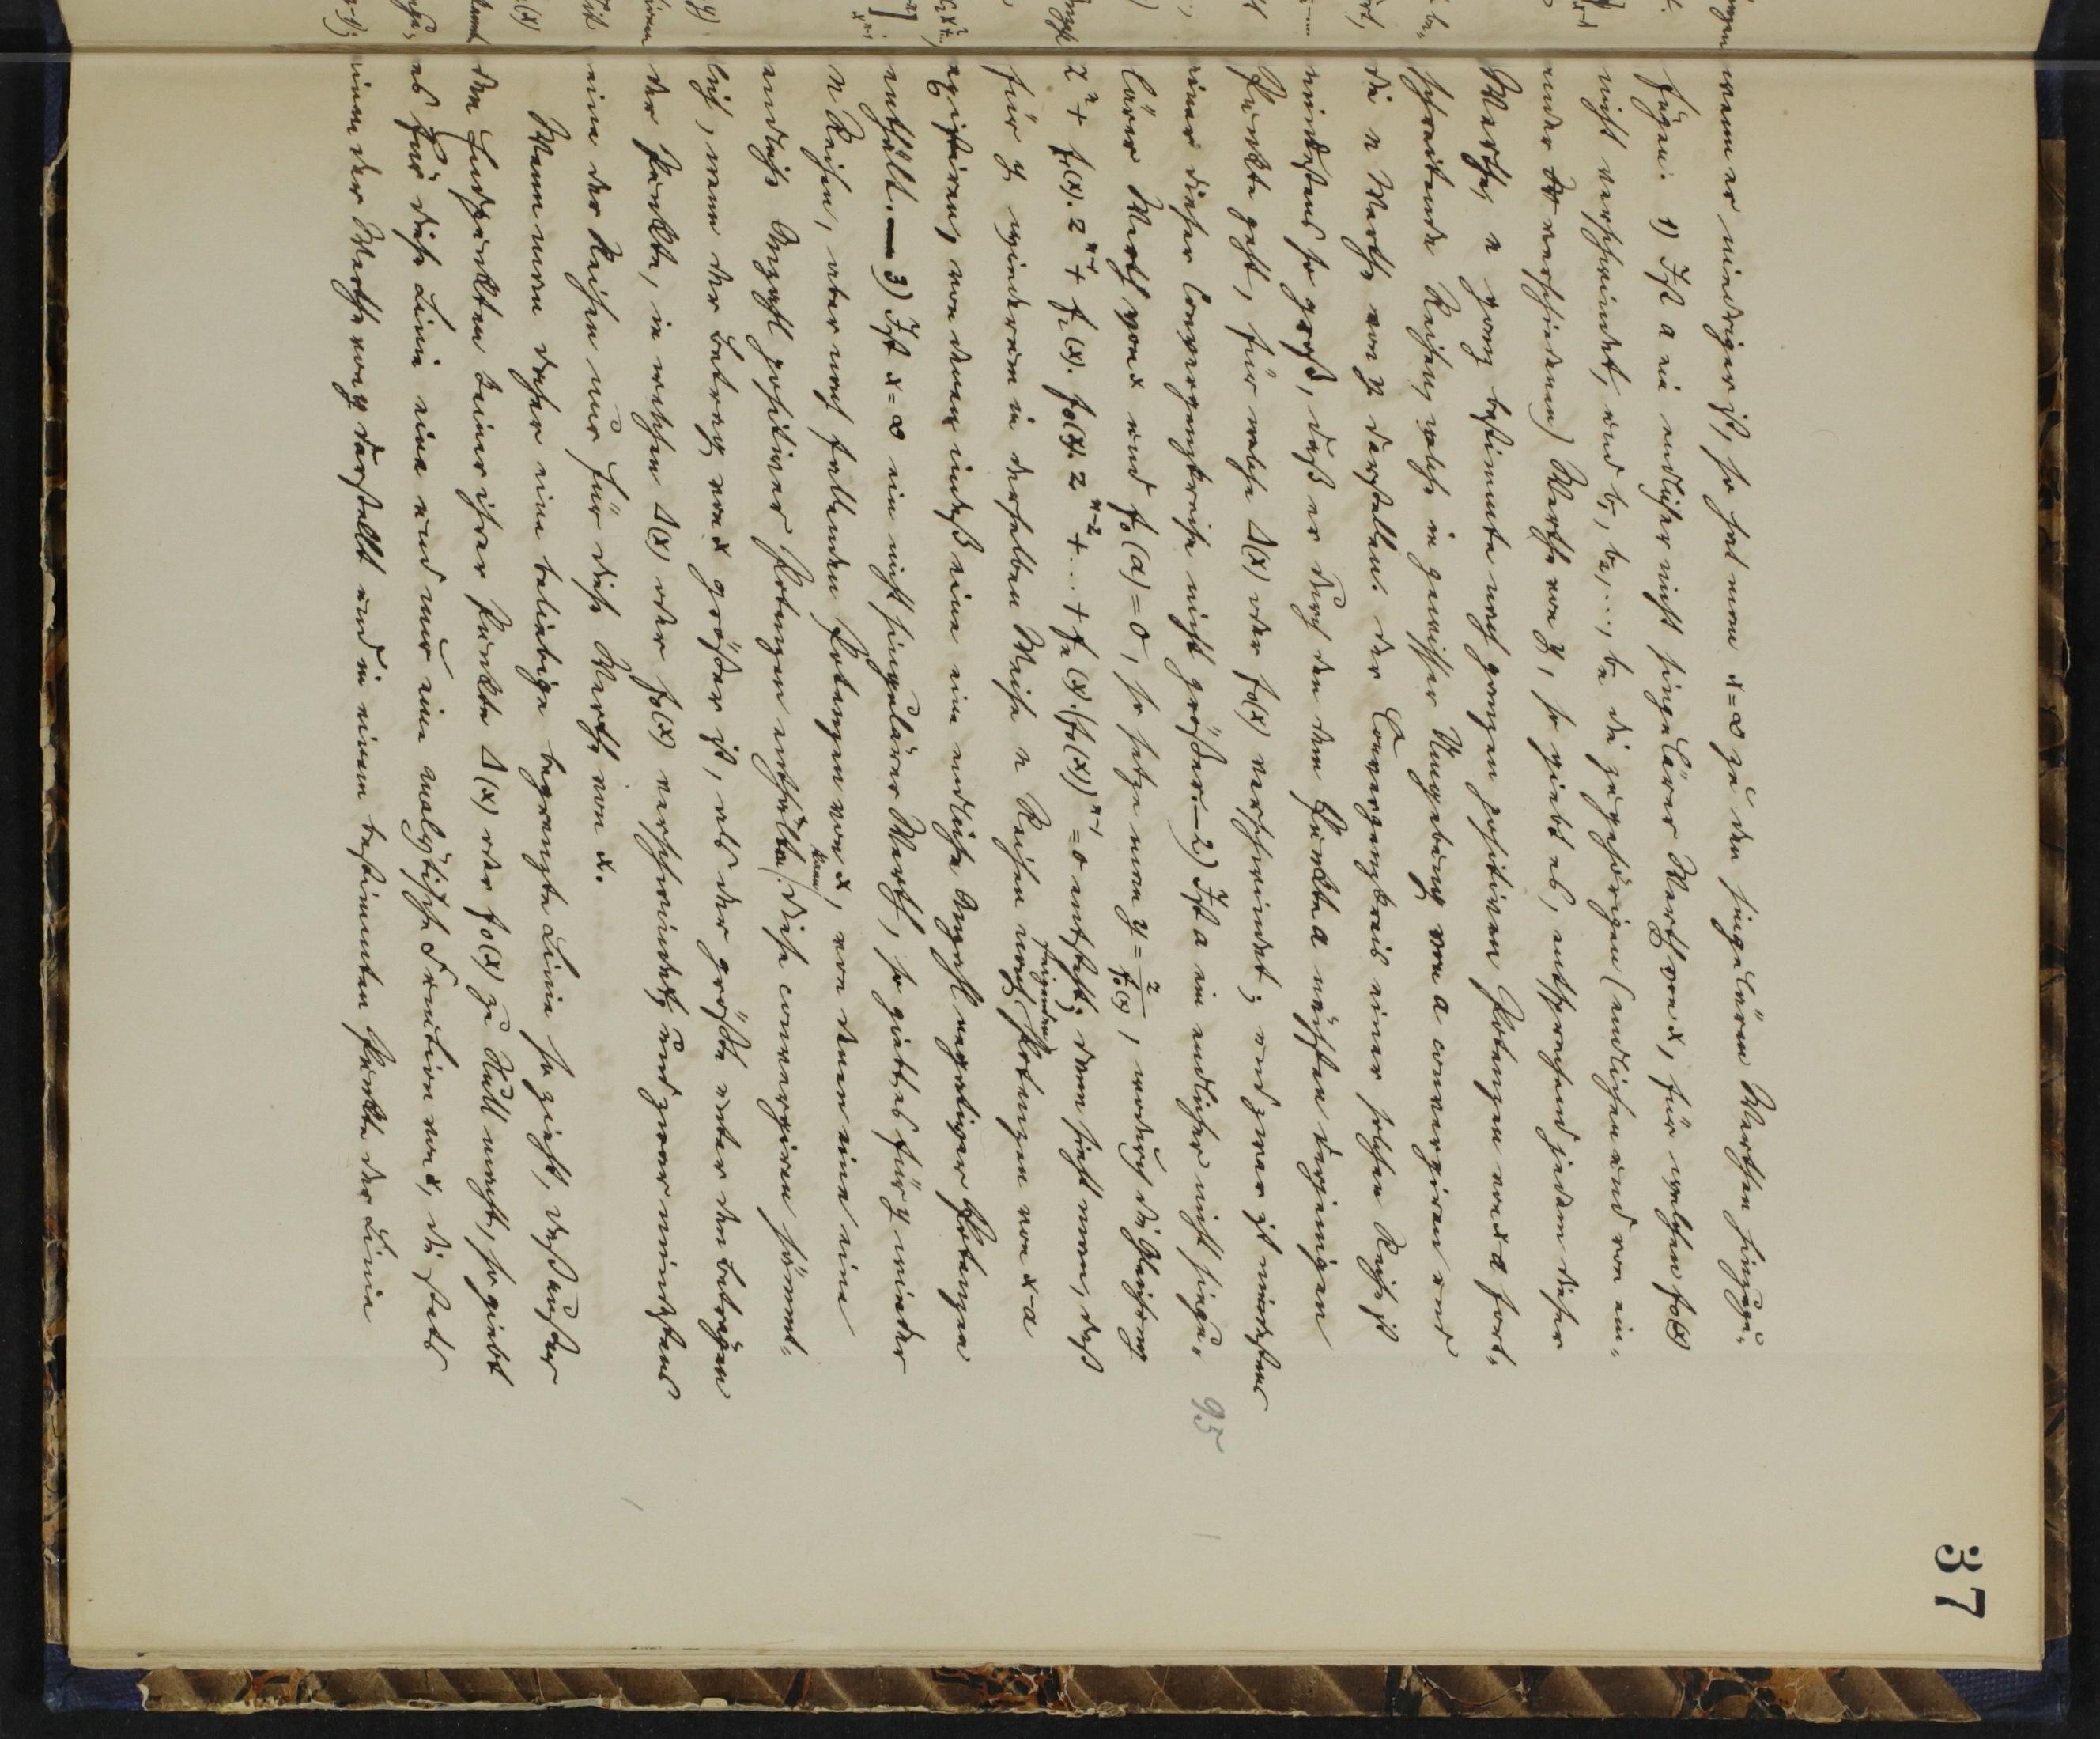 37
wenn er niedriger ist, so hat man x=∞ zu den singulären Werthen hinzuzu-
fügen. 1) Ist a ein endlicher nicht singulärer Werth von x, für welchen f₀(x)
nicht verschwindet, und b₁, b₂, ..., bₙ die zugehörigen (endlichen und von ein-
ander verschiedenen) Werthe von y, so giebt es, entsprechend jedem dieser
Werthe, n ganz bestimmte nach ganzen positiven Potenzen von x-a fort-
schreitende Reihen, welche in gewisser Umgebung von a convergiren und
die n Werthe von y darstellen. Der Convergenzkreis einer solchen Reihe ist
mindestens so groß, daß er durch den dem Punkte a nächsten derjenigen
Punkte geht, für welche Δ(x) oder f₀(x) verschwindet; und zwar ist mindestens
einer dieser Convergenzkreise nicht größer. — 2) Ist a ein endlicher nicht singu-
lärer Werth von x und f₀(a)=0, so setze man y = z/f₀(x), wodurch die Gleichung
zⁿ + f₁(x).zⁿ⁻¹ + f₂(x).f₀(x).zⁿ⁻² + ... + fₙ(x).(f₀(x))ⁿ⁻¹ = 0 entsteht; dann sieht man, daß
für y wiederum in derselben Weise n Reihen nach steigenden Potenzen von x-a
existiren, von denen indeß eine eine endliche Anzahl negativer Potenzen
enthält. — 3) Ist x=∞ ein nicht singulärer Werth, so giebt es für y wieder
n Reihen, aber nach fallenden Potenzen von x, von denen eine eine
endliche Anzahl positiver Potenzen enthalten kann. Diese convergiren sämmt-
lich, wenn der Betrag von x größer ist, als der größte unter den Beträgen
der Punkte, in welchen Δ(x) oder f₀(x) verschwindet, und zwar mindestens
eine der Reihen nur für diese Werthe von x.
Wenn man daher eine beliebige begrenzte Linie so zieht, daß außer
den Endpunkten keiner ihrer Punkte Δ(x) oder f₀(x) zu Null macht, so giebt
es für diese Linie eine und nur eine analytische Function von x, die stets
einen der Werthe von y darstellt und in einem bestimmten Punkte der Linie
95